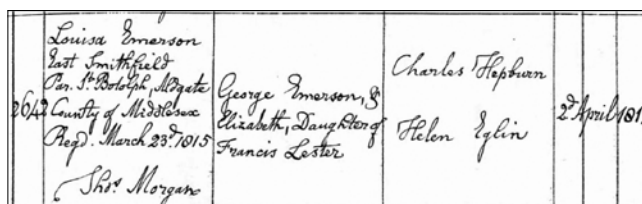 Louisa Emerson
East Smithfield
Par. St. Botolph, Algate
County of Middlesex
Regd. March 23d. 1815
Thos. Morgan
George Emerson, &
Elizabeth, Daughter of
Francis Lester
Charles Hepburn
Helen Eglin
2d April 181